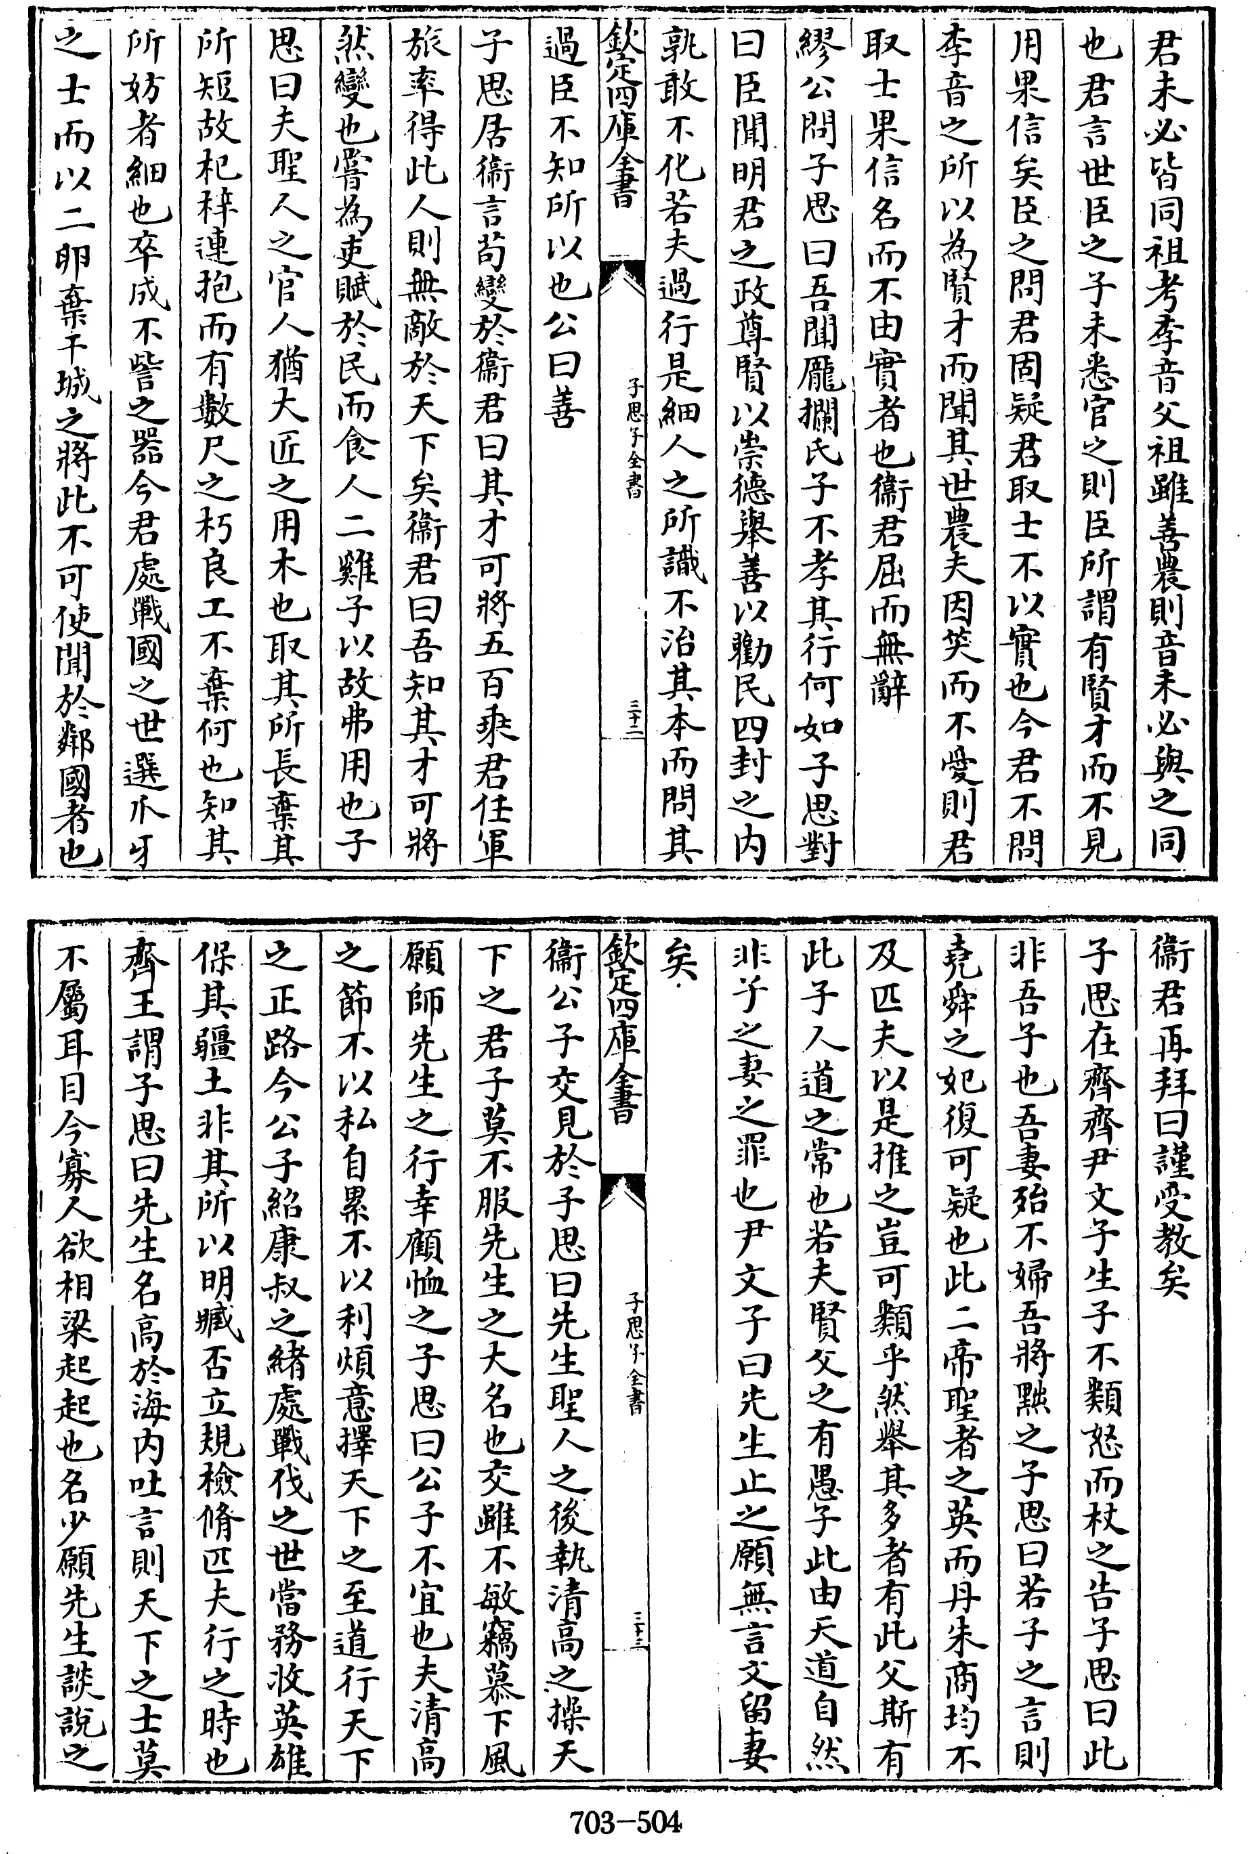 君未必皆同祖考李音父祖雖善農則音未必與之同
也君言世臣之子未悉官之則臣所謂有賢才而不見
用果信矣臣之問君固疑君取士不以實也今君不問
李音之所以為賢才而聞其世農夫因笑而不愛則君
取士果信名而不由實者也衞君屈而無辭
繆公問子思曰吾聞龎攔氏子不孝其行何如子思對
曰臣聞明君之政尊賢以崇德舉善以勸民四封之内
孰敢不化若夫過行是細人之所識不治其本而問其
過臣不知所以也公曰善
欽定四庫全書
子思子全書
三十二
子思居衞言苟變於衞君曰其才可將五百乘君任軍
旅率得此人則無敵於天下矣衞君曰吾知其才可將
然變也嘗為吏賦於民而食人二雞子以故弗用也子
思曰夫聖人之官人猶大匠之用木也取其所長棄其
所短故杞梓連抱而有數尺之朽良工不棄何也知其
所妨者細也卒成不訾之器今君處戰國之世選爪牙
之士而以二卵棄干城之將此不可使聞於鄰國者也
衞君再拜曰謹受教矣
子思在齊齊尹文子生子不類怒而杖之告子思曰此
非吾子也吾妻殆不婦吾將黜之子思曰若子之言則
堯舜之妃復可疑也此二帝聖者之英而丹朱商均不
及匹夫以是推之豈可類乎然舉其多者有此父斯有
此子人道之常也若夫賢父之有愚子此由天道自然
非子之妻之罪也尹文子曰先生止之願無言文留妻
矣
欽定四庫全書
子思子全書
三十三
衞公子交見於子思曰先生聖人之後執清高之操天
下之君子莫不服先生之大名也交雖不敏竊慕下風
願師先生之行幸顧恤之子思曰公子不宜也夫清高
之節不以私自累不以利煩意擇天下之至道行天下
之正路今公子紹康叔之緒處戰伐之世當務收英雄
保其疆土非其所以明臧否立規檢脩匹夫行之時也
齊王謂子思曰先生名高於海内吐言則天下之士莫
不屬耳目今寡人欲相梁起起也名少願先生談說之
703-504